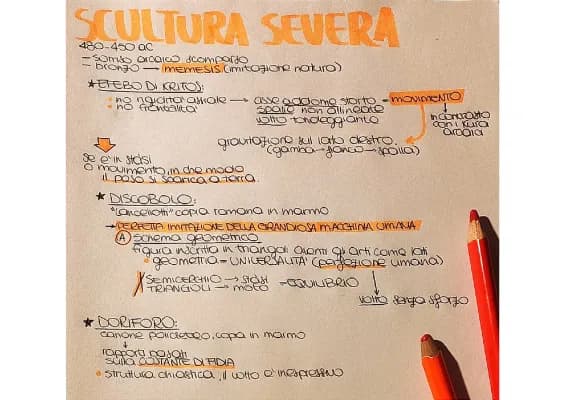 SCULTURA SEVERA
480-450 aC
- sorriso arcaico scomparso
- bronzo → MEMESIS (imitazione natura)
★ EFEBO DI KRITOS:
• no rigidità assiale → asse addome storto = MOVIMENTO
• no frontalità
spalle non allineate
volto tondeggiante
in contrasto con i kuroi arcaici
gravitazione sul lato destro
(gamba → fianco → spalla)
se è in stasi
o movimento, in che modo
il peso si scarica a terra
★ DISCOBOLO:
"Lancellotti" copia romana in marmo
→ PERFETTA IMITAZIONE DELLA GRANDIOSA MACCHINA UMANA
A schema geometrico
figura inscritta in triangoli aventi gli arti come lati
• geometria = UNIVERSALITÀ (perfezione umana)
SEMICERCHIO → stasi
TRIANGOLI → moto
EQUILIBRIO
volto senza sforzo
★ DORIFORO:
canone policleteo, copia in marmo
↓
rapporti basati
sulla COSTANTE DI FIDIA
• struttura chiastica, il volto è inespressivo